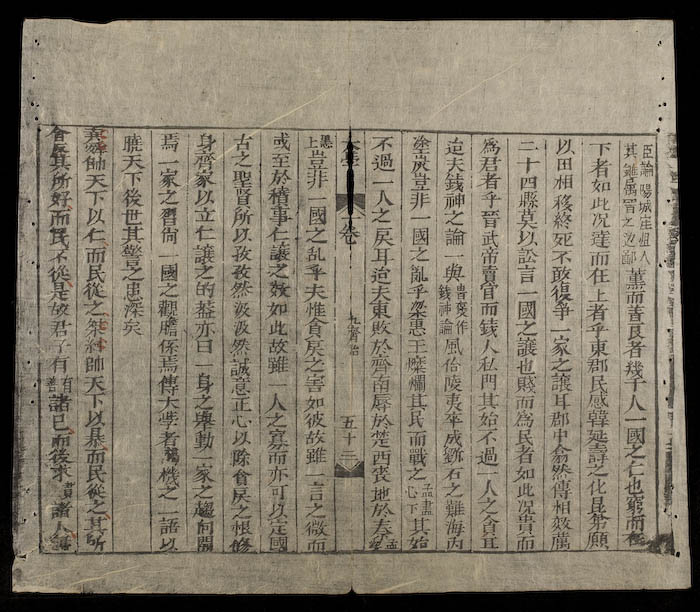 薰而善良者幾千人一國之仁也窮而在
下者如此况達而在上者乎東郡民感韓延壽之化昆弟願
以田相移終死不敢復爭一家之讓耳郡中翕然傳相效厲
二十四縣莫以訟言一國之讓也賤而爲民者如此况貴而
爲君者乎晉武帝賣官而錢入私門其始不過一人之貪耳
迨夫錢神之論一興魯褒作錢神論風俗陵夷卒成劉石之難海内
塗炭豈非一國之亂乎梁惠王糜爛其民而戰之孟盡心下其始
不過一人之戾耳迨夫東敗於齊南辱於楚西喪地於秦孟
九齊治
五十三
惠上豈非一國之乱乎夫惟貪戾之害如彼故雖一言之微而
或至於僨事仁讓之效如此故雖一人之寡而亦可以定國
古之聖賢所以孜孜然汲汲然誠意正心以除貪戾之根修
身齊家以立仁讓之的蓋亦曰一身之舉動一家之趨向關
焉一家之習尚一國之觀瞻係焉傳大學者揭機之一語以
曉天下後世其警之患深矣
堯舜帥天下以仁而民從之桀紂帥天下以暴而民從之其所
令反其所好而民不從是故君子有有善諸己而後求責諸人